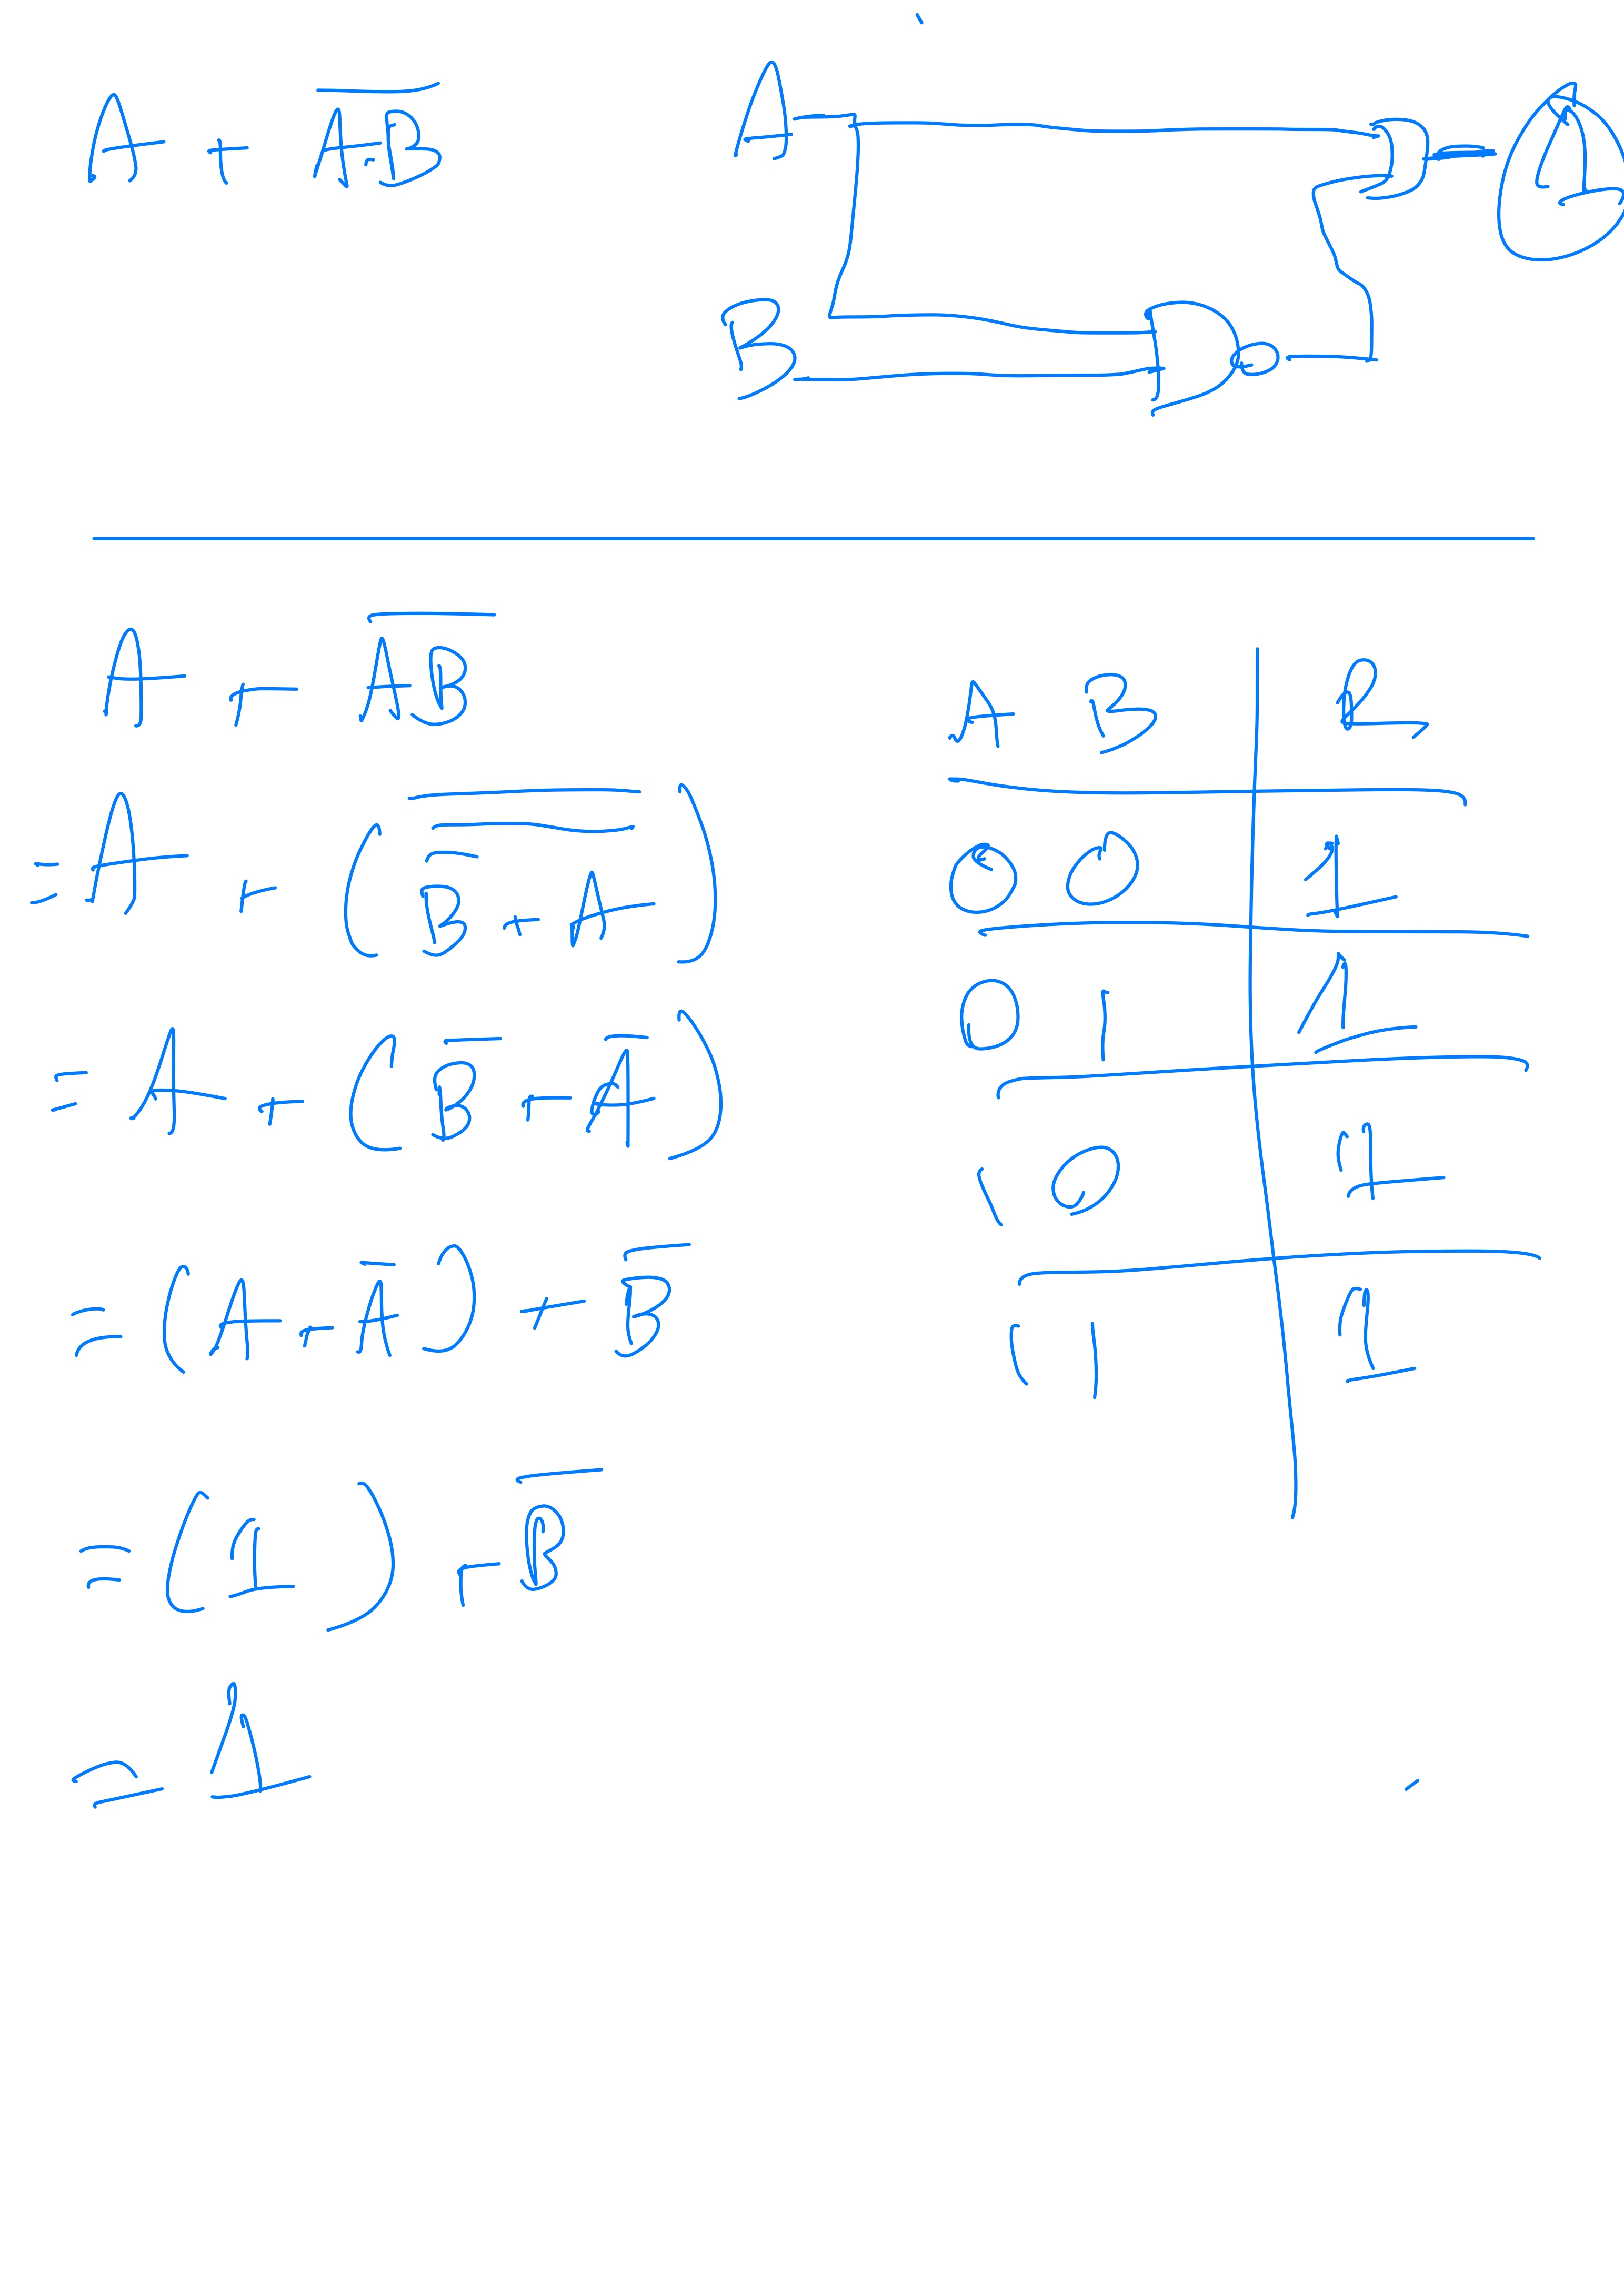 A + A̅·̅B̅
A
1
B
A + A̅B̅
= A + (B̅ + A)
= A + (B̅ + A̅)
= (A + A̅) + B̅
= (1) + B̅
= 1
A B | R
0 0 | 1
0 1 | 1
1 0 | 1
1 1 | 1